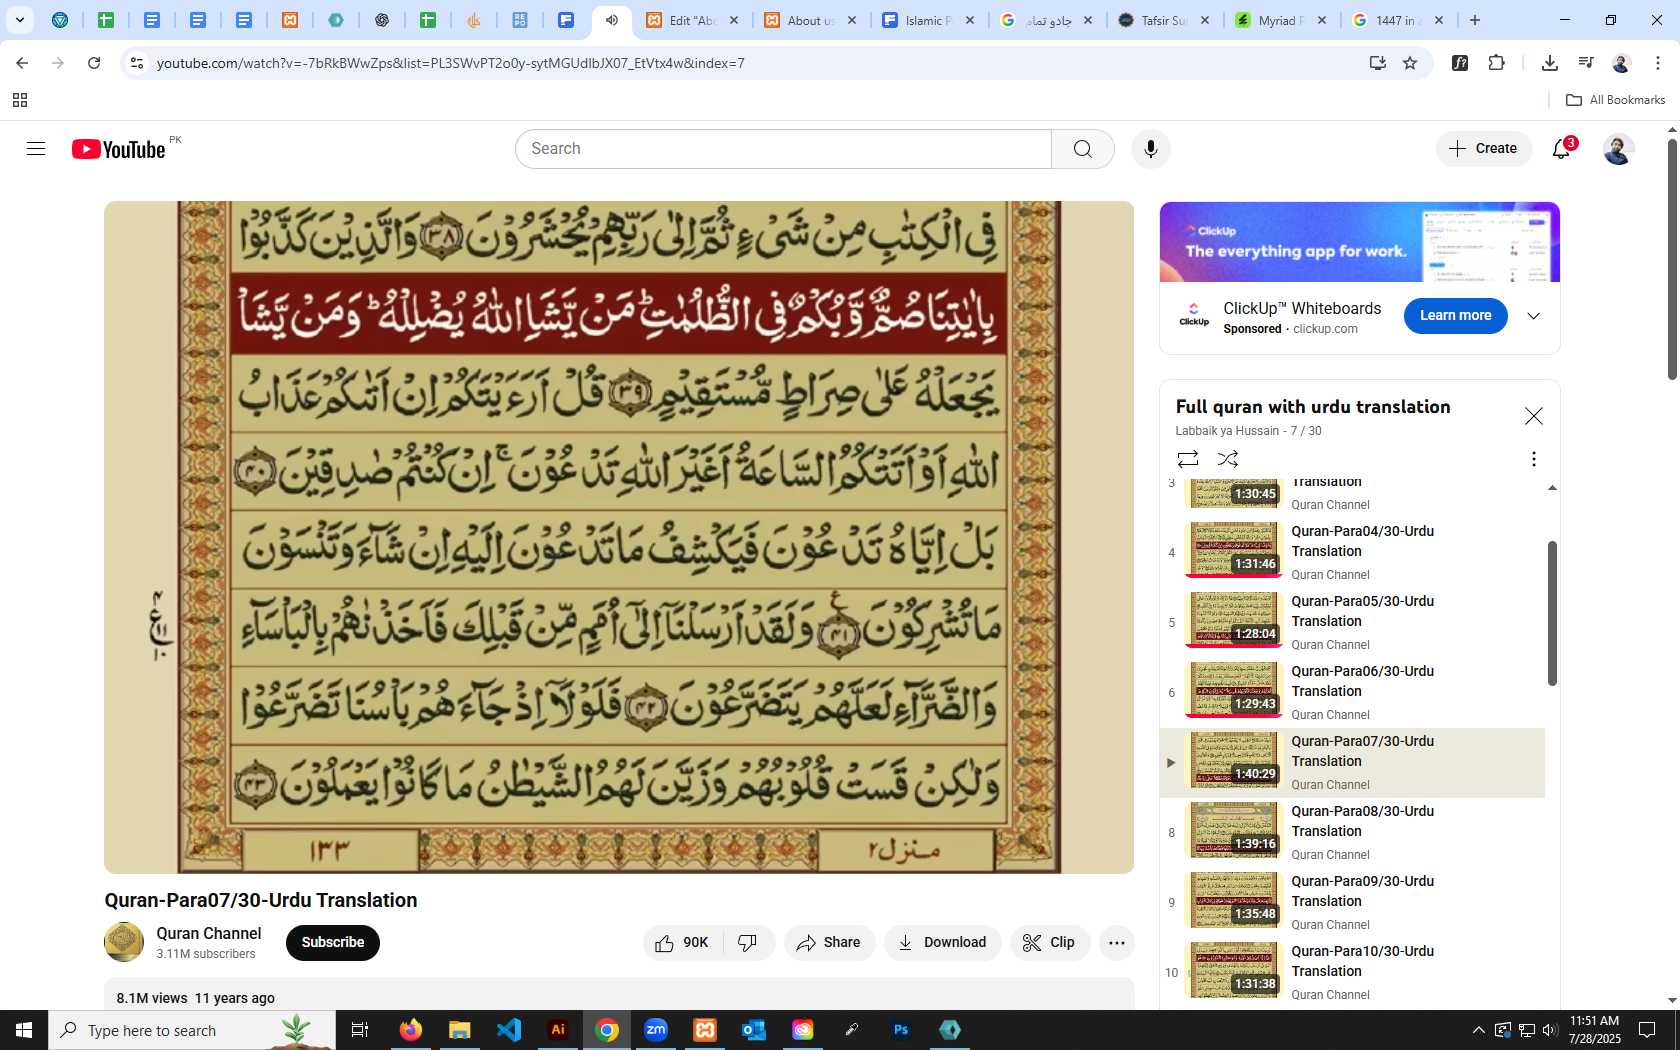 Edit "Abo
About us
Islamic P
جادو تمام
Tafsir Su
Myriad P
1447 in
youtube.com/watch?v=-7bRkBWwZps&list=PL3SWvPT2o0y-sytMGUdlbJX07_EtVtx4w&index=7
All Bookmarks
YouTube PK
Search
Create
3
فِی الْکِتٰبِ مِنْ شَیْءٍ ثُمَّ اِلٰی رَبِّهِمْ یُحْشَرُوْنَ ﴿۳۸﴾ وَالَّذِیْنَ کَذَّبُوْا
بِاٰیٰتِنَا صُمٌّ وَّ بُکْمٌ فِی الظُّلُمٰتِ ؕ مَنْ یَّشَاِ اللّٰهُ یُضْلِلْهُ ؕ وَمَنْ یَّشَاْ
یَجْعَلْهُ عَلٰی صِرَاطٍ مُّسْتَقِیْمٍ ﴿۳۹﴾ قُلْ اَرَءَیْتَکُمْ اِنْ اَتٰىکُمْ عَذَابُ
اللّٰهِ اَوْ اَتَتْکُمُ السَّاعَةُ اَغَیْرَ اللّٰهِ تَدْعُوْنَ ۚ اِنْ کُنْتُمْ صٰدِقِیْنَ ﴿۴۰﴾
بَلْ اِیَّاهُ تَدْعُوْنَ فَیَکْشِفُ مَا تَدْعُوْنَ اِلَیْهِ اِنْ شَآءَ وَ تَنْسَوْنَ
مَا تُشْرِکُوْنَ ﴿۴۱﴾ ع وَلَقَدْ اَرْسَلْنَاۤ اِلٰۤی اُمَمٍ مِّنْ قَبْلِکَ فَاَخَذْنٰهُمْ بِالْبَاْسَآءِ
۴
ع ۱۱
۱۰
وَالضَّرَّآءِ لَعَلَّهُمْ یَتَضَرَّعُوْنَ ﴿۴۲﴾ فَلَوْلَاۤ اِذْ جَآءَهُمْ بَاْسُنَا تَضَرَّعُوْا
وَلٰکِنْ قَسَتْ قُلُوْبُهُمْ وَزَیَّنَ لَهُمُ الشَّیْطٰنُ مَا کَانُوْا یَعْمَلُوْنَ ﴿۴۳﴾
منزل ۲
۱۳۳
Quran-Para07/30-Urdu Translation
Quran Channel
3.11M subscribers
Subscribe
90K
Share
Download
Clip
8.1M views 11 years ago
ClickUp
The everything app for work.
ClickUp
ClickUp™ Whiteboards
Sponsored · clickup.com
Learn more
Full quran with urdu translation
Labbaik ya Hussain - 7 / 30
3
1:30:45
Translation
Quran Channel
4
1:31:46
Quran-Para04/30-Urdu
Translation
Quran Channel
5
1:28:04
Quran-Para05/30-Urdu
Translation
Quran Channel
6
1:29:43
Quran-Para06/30-Urdu
Translation
Quran Channel
1:40:29
Quran-Para07/30-Urdu
Translation
Quran Channel
8
1:39:16
Quran-Para08/30-Urdu
Translation
Quran Channel
9
1:35:48
Quran-Para09/30-Urdu
Translation
Quran Channel
10
1:31:38
Quran-Para10/30-Urdu
Translation
Quran Channel
Type here to search
Ai
zm
Ps
11:51 AM
7/28/2025